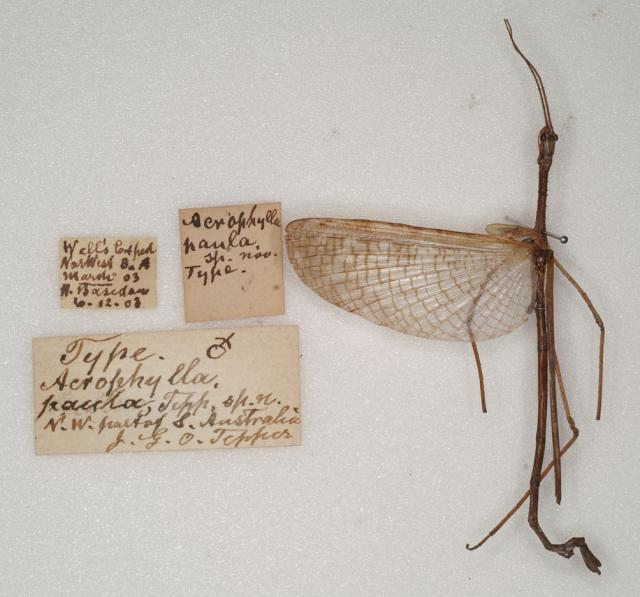 Well's Exped
Nor West S. A
March 03
H. Basedow
6. 12. 03
Acrophylla
paula.
sp. nov.
Type.
Type. ♂
Acrophylla,
paula, Tepp. sp. n.
N. W. part of S. Australia
J. G. O. Tepper